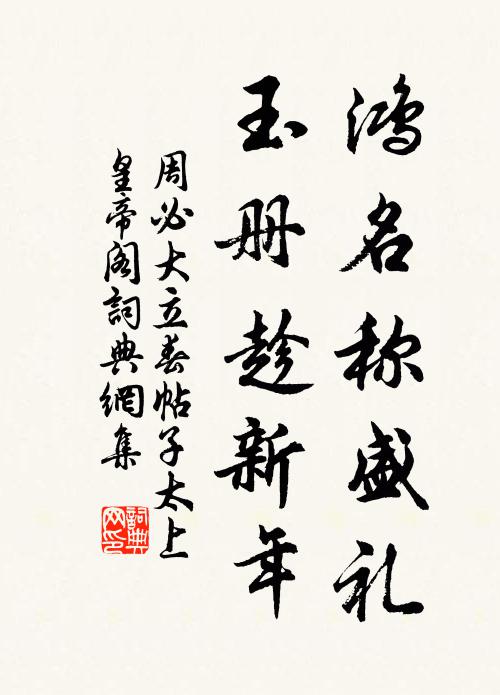 鸿名称盛礼
玉册趁新年
周必大立春帖子太上
皇帝阁詞典網集
詞典
网印